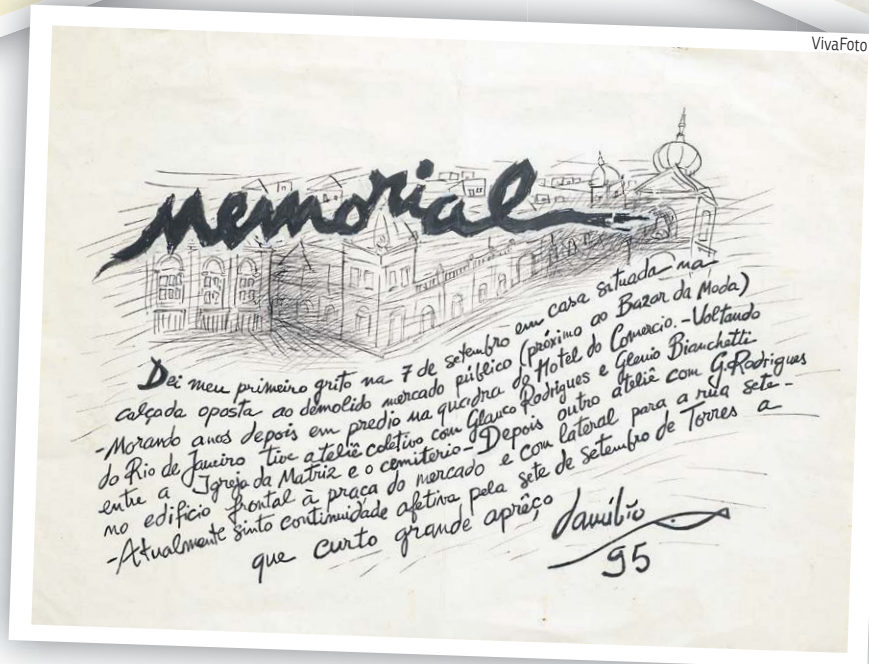 VivaFoto
Memorial
Dei meu primeiro grito na 7 de setembro em casa situada na
calçada oposta ao demolido mercado público (próximo ao Bazar da Moda)
-Morando anos depois em predio na quadra do Hotel do Comercio.-Voltando
do Rio de Janeiro tive ateliê coletivo com Glauco Rodrigues e Glenio Bianchetti
entre a Igreja da Matriz e o cemiterio-Depois outro ateliê com G.Rodrigues
no edificio frontal à praça do mercado e com lateral para a rua sete-
-Atualmente sinto continuidade afetiva pela sete de setembro de Torres a
que curto grande aprêço
Danúbio
95